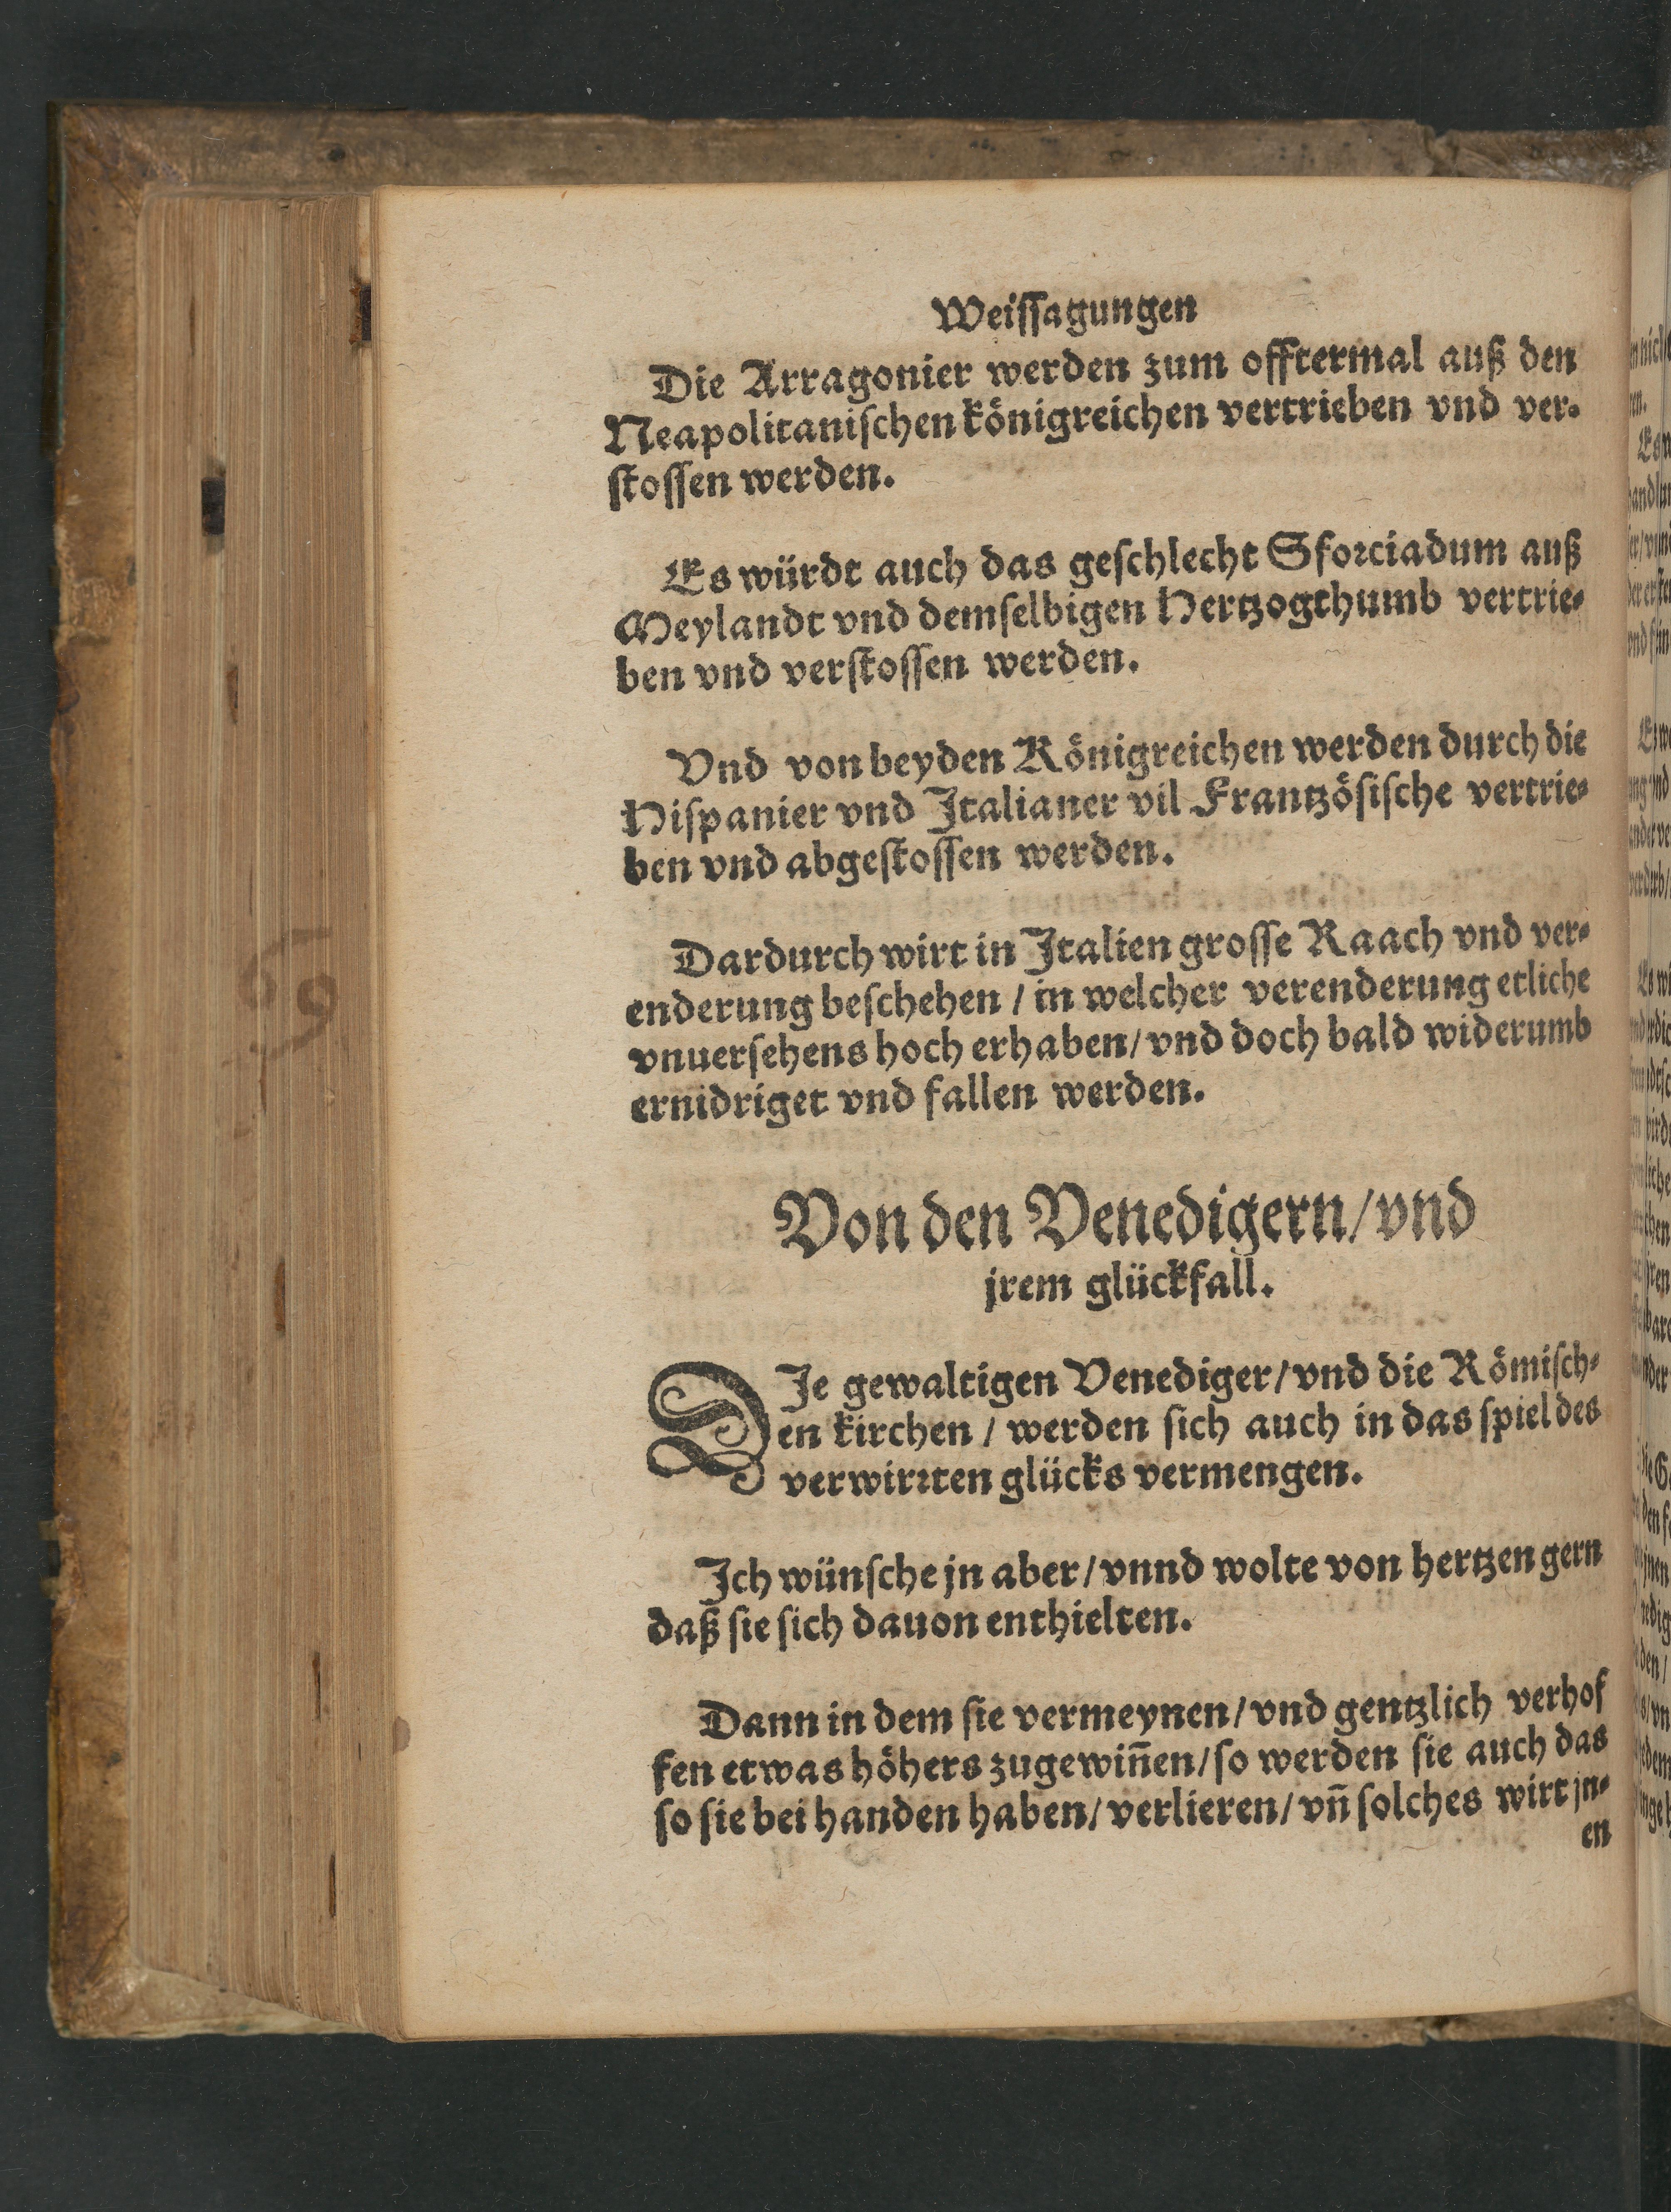 Weiſſagungen
Die Arragonier werden zum offtermal auß den
Neapolitaniſchen königreichen vertrieben vnd ver-
ſtoſſen werden.
Es würdt auch das geſchlecht Sforciadum auß
Meylandt vnd demſelbigen Hertzogthumb vertrie-
ben vnd verſtoſſen werden.
Vnd von beyden Königreichen werden durch die
Hiſpanier vnd Italianer vil Frantzöſiſche vertrie-
ben vnd abgeſtoſſen werden.
Dardurch wirt in Italien groſſe Raach vnd ver-
enderung beſchehen / in welcher verenderung etliche
vnuerſehens hoch erhaben / vnd doch bald widerumb
ernidriget vnd fallen werden.
69
Von den Venedigern / vnd
jrem glückfall.
DIe gewaltigen Venediger / vnd die Römiſch-
en kirchen / werden ſich auch in das ſpiel des
verwirrten glücks vermengen.
Ich wünſche jn aber / vnnd wolte von hertzen gern
daß ſie ſich dauon enthielten.
Dann in dem ſie vermeynen / vnd gentzlich verhof
fen etwas höhers zugewiñen / ſo werden ſie auch das
ſo ſie bei handen haben / verlieren / vñ ſolches wirt jn-
en